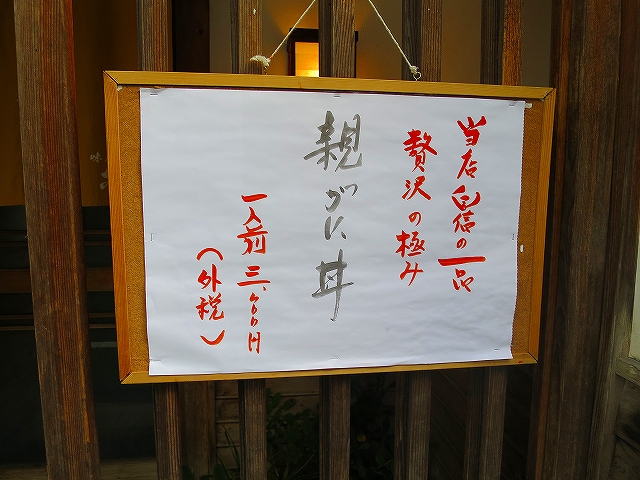 当店自信の一品
贅沢の極み
親がに丼
一人前 三、000円
(外税)
味